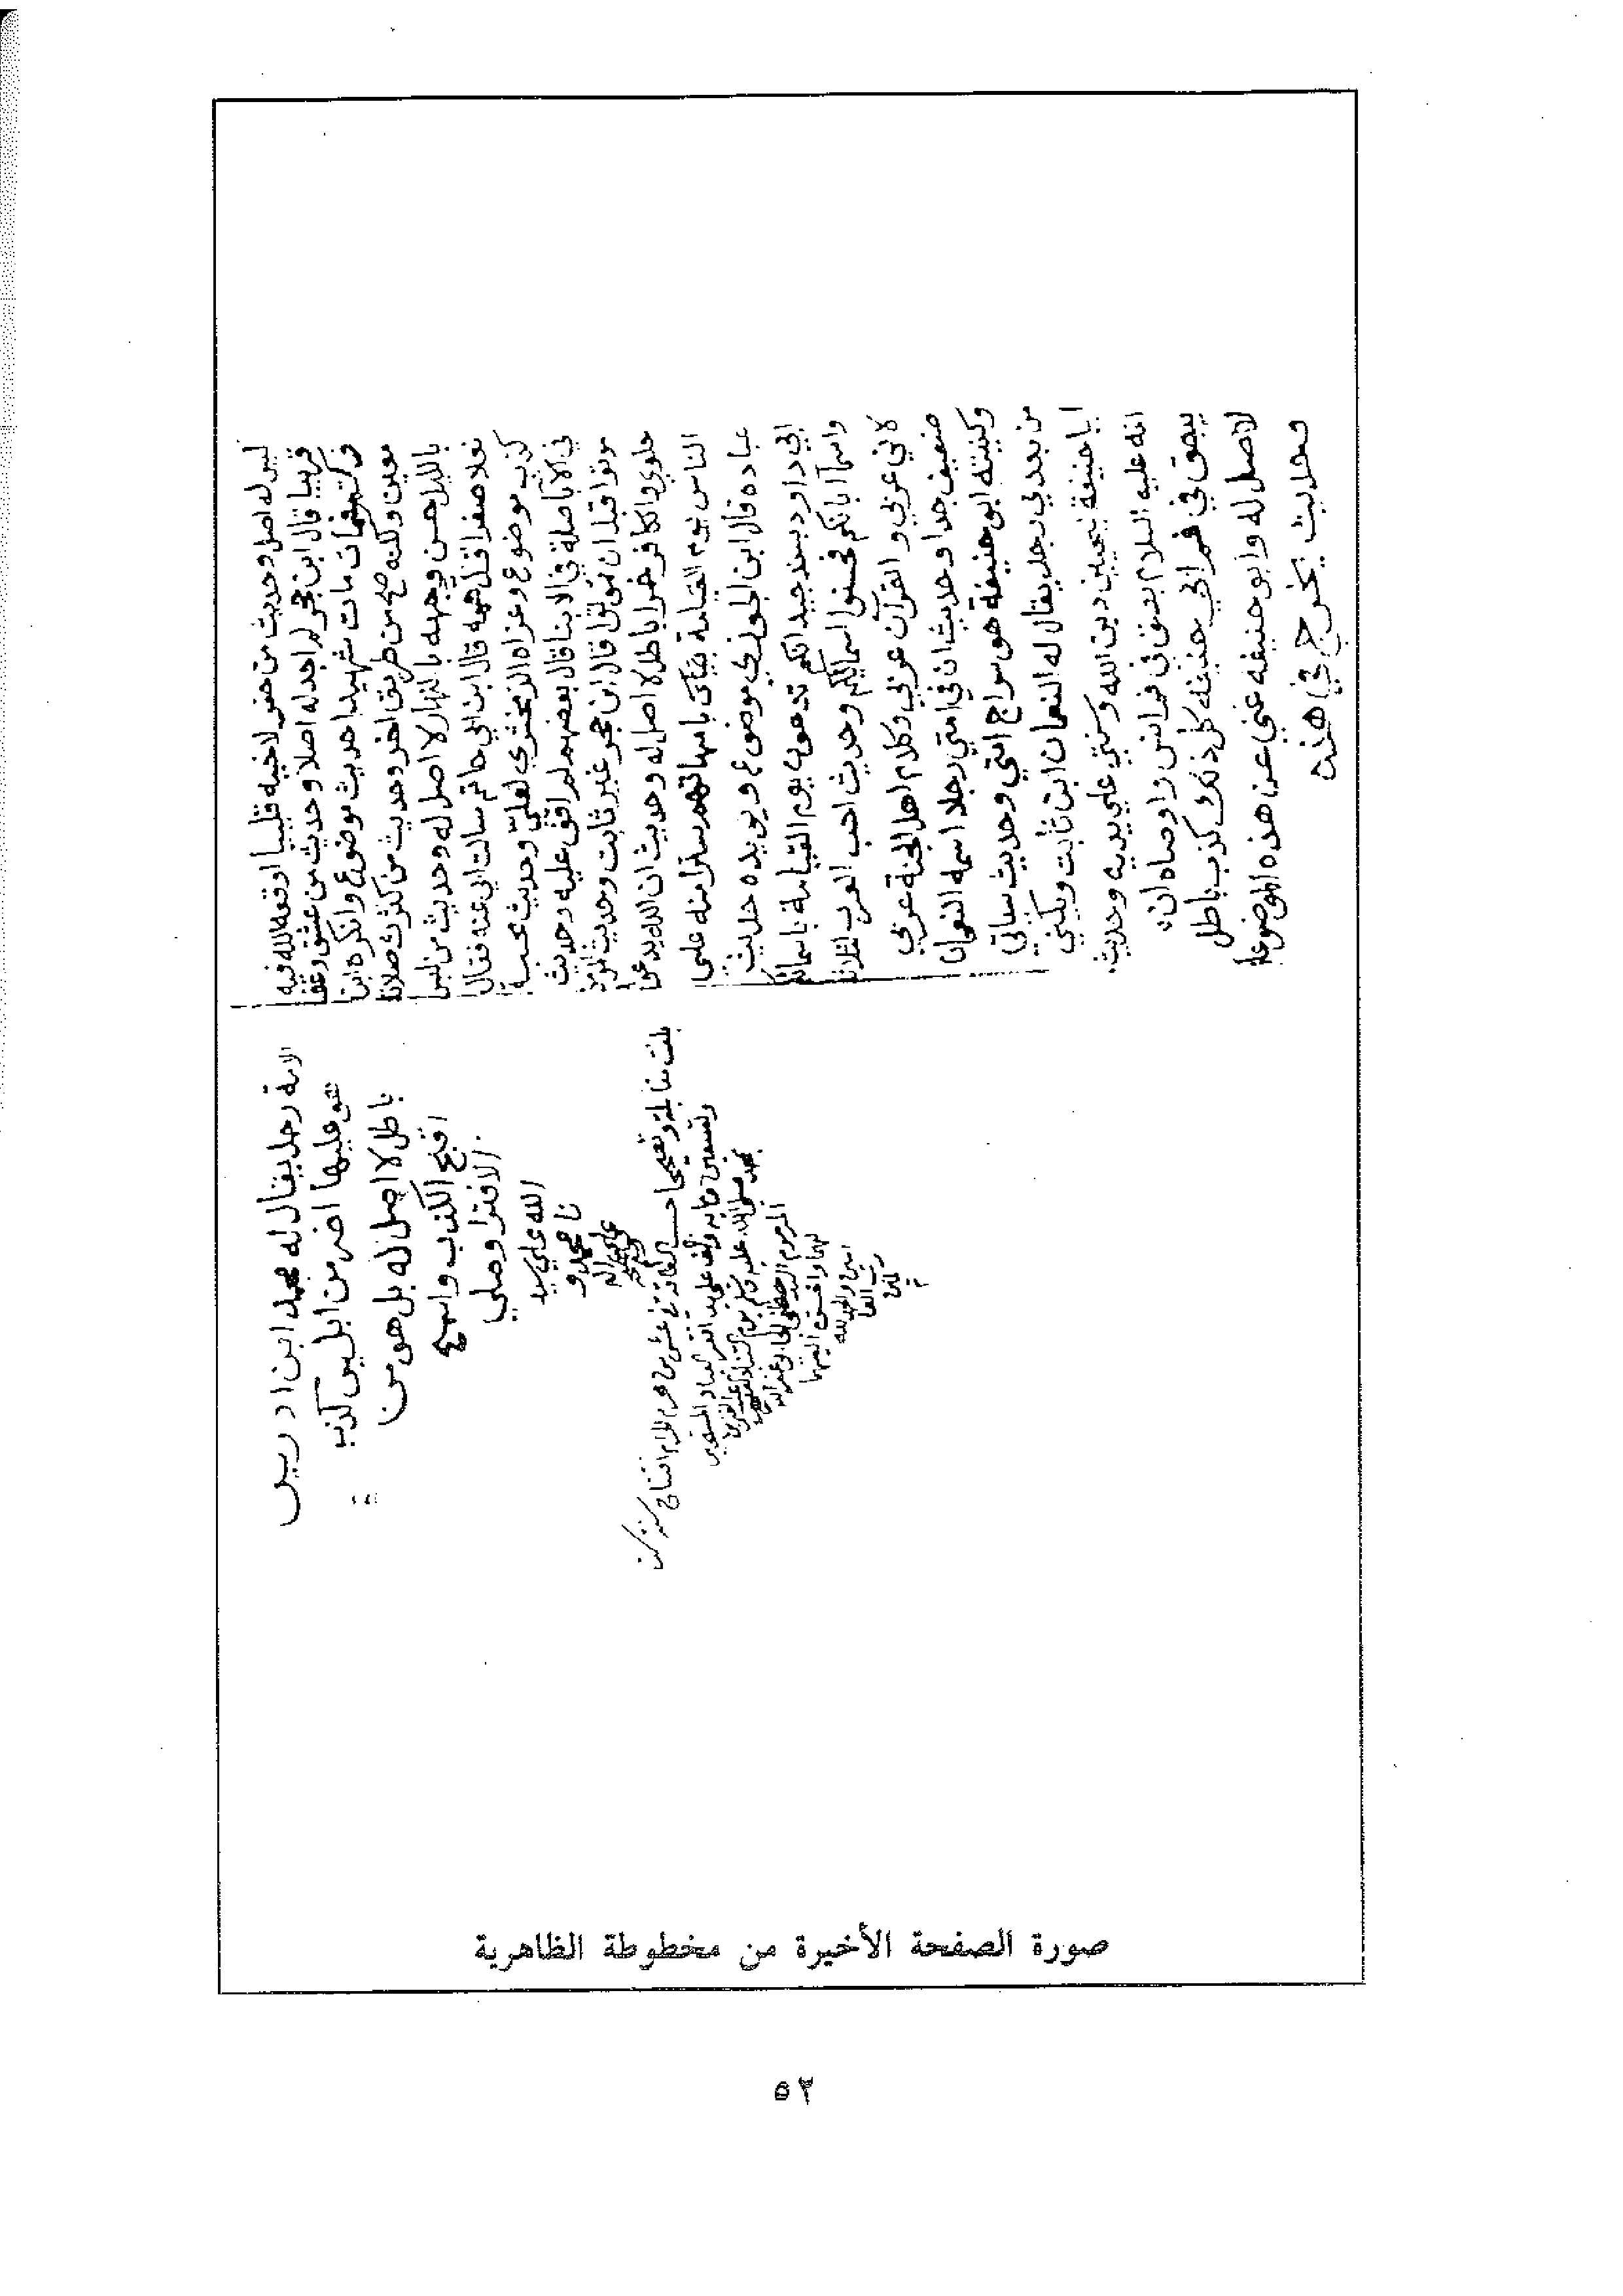 ليس له اصل وحديث من حفر لاخيه قليبا اوقعه الله فيه
قريبا قال ابن حجر لم اجد له اصلا وحديث من عشق وعف
وكتم فمات مات شهيدا حديث موضوع وانكره ابن
معين ولكنه صح من طريق اخر وحديث من كثرت صلاته
بالليل حسن وجهه بالنهار لا اصل له وحديث من لبس
نعلا صفرا قل همه قال ابن ابي حاتم سالت ابي عنه فقال
كذب موضوع وعزاه الزمخشري لعليّ وحديث محبة
في الآبا صلة في الابنا قال بعضهم لم اقف عليه وحديث
موتوا قبل ان تموتوا قال ابن حجر غير ثابت وحديث
حلوي والكافر خمرا باطل لا اصل له وحديث ان الله يدعوا
الناس يوم القيامة بامهاتهم سترا منه على
عباده قال ابن الجوزي موضوع ويويده حديث
ابي داود بسند جيد انكم تدعون يوم القيامة باسمائكم
واسما آبائكم فحسنوا اسمائكم وحديث احب العرب لثلاث
لاني عربي والقرآن عربي وكلام اهل الجنة عربي
ضعيف جدا وحديث ان في امتي رجلا اسمه النعمان
وكنيته ابو حنيفة هو سراج امتي وحديث سياتي
من بعدي رجل يقال له النعمان ابن ثابت ويكني
ابا حنيفة يحيين دين الله وسنتي علي يديه وحديث
انه عليه السلام بصق في فم انس واوصاه ان
يبصق في فم ابي حنيفه كل ذلك كذب باطل
لا اصل له وابو حنيفه غني عن هذه الموضوعة
وحديث يخرج في هذه
الامة رجل يقال له محمد ابن ادريس
هو عليها اضر من ابليس كذب
باطل لا اصل له بل هو من
اقبح الكذب واسمج
الافترا وصلي
الله علي سيد
نا محمد و
علي اله
وصحبه
بلغت مقابلة وتصحيحا حسب الطاقة في
محمد صلى الله عليه وسلم
المرحوم
لهما
امين والحمد لله
رب العا
لمين
م
صورة الصفحة الأخيرة من مخطوطة الظاهرية
٥٢